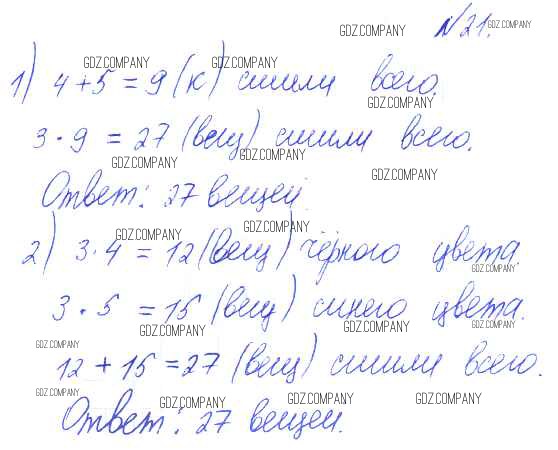 №21.
1) 4+5=9 (к) сшили всего.
3·9=27 (вещ) сшили всего.
Ответ: 27 вещей
2) 3·4=12 (вещ) чёрного цвета.
3·5=15 (вещ) синего цвета.
12+15=27 (вещ) сшили всего.
Ответ: 27 вещей.
GDZ.COMPANY GDZ.COMPANY
GDZ.COMPANY GDZ.COMPANY
GDZ.COMPANY
GDZ.COMPANY GDZ.COMPANY
GDZ.COMPANY
GDZ.COMPANY GDZ.COMPANY
GDZ.COMPANY
GDZ.COMPANY GDZ.COMPANY GDZ.COMPANY
GDZ.COMPANY
GDZ.COMPANY
GDZ.COMPANY GDZ.COMPANY GDZ.COMPANY